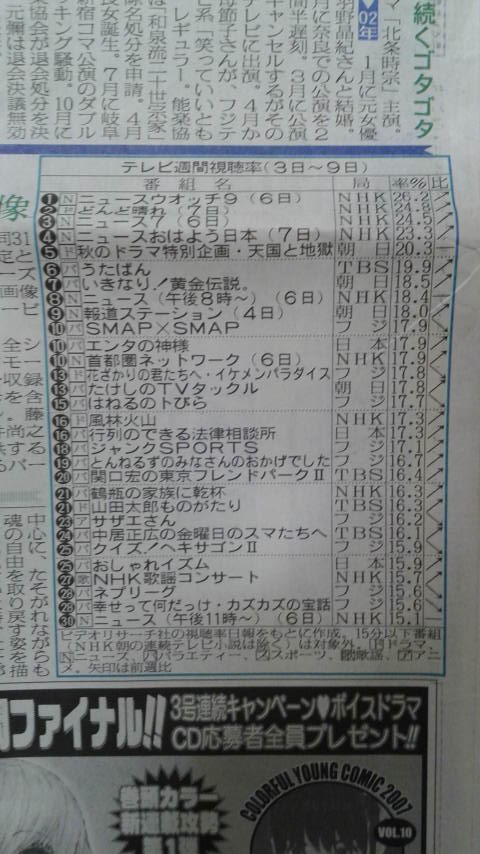 続くゴタゴタ
02年
1月に元女優
マ「北条時宗」主演。
羽野晶紀さんと結婚。
月に奈良での公演を2
間半遅刻。3月に公演
キャンセルするがその
テレビに出演。4月か
母節子さんが、フジテ
ビ系「笑っていいとも
レギュラー。能楽協
は「和泉流二十世宗家」
除名処分を申請。4月
長女誕生。7月に岐阜
新宿コマ公演のダブル
キング騒動。10月に
楽協会が退会処分を決
元彌は退会決議無効
テレビ週間視聴率(3日~9日)
番組名 局 率% 比
❶ N ニュースウオッチ9(6日) NHK 26.2
❷ ド どんど晴れ(7日) NHK 24.5
❸ N ニュース7(6日) NHK 24.5
❹ N ニュースおはよう日本(7日) NHK 23.3
❺ ド 秋のドラマ特別企画・天国と地獄 朝日 20.3
❻ バ うたばん TBS 19.9
❼ バ いきなり!黄金伝説。 朝日 18.5
❽ N ニュース(午後8時~)(6日) NHK 18.4
❾ N 報道ステーション(4日) 朝日 18.0
❿ バ SMAP×SMAP フジ 17.9
❿ バ エンタの神様 日本 17.9
❿ N 首都圏ネットワーク(6日) NHK 17.9
⓭ ド 花ざかりの君たちへ・イケメンパラダイス フジ 17.8
⓭ バ たけしのTVタックル 朝日 17.8
⓯ バ はねるのトびら フジ 17.7
⓰ ド 風林火山 NHK 17.3
⓰ バ 行列のできる法律相談所 日本 17.3
⓲ バ ジャンクSPORTS フジ 17.1
⓳ バ とんねるずのみなさんのおかげでした フジ 16.7
⓴ バ 関口宏の東京フレンドパークⅡ TBS 16.4
㉑ バ 鶴瓶の家族に乾杯 NHK 16.3
㉑ ド 山田太郎ものがたり TBS 16.3
㉓ ア サザエさん フジ 16.2
㉔ バ 中居正広の金曜日のスマたちへ TBS 16.1
㉕ バ クイズ!ヘキサゴンⅡ フジ 15.9
㉕ バ おしゃれイズム 日本 15.9
㉗ 歌 NHK歌謡コンサート NHK 15.7
㉘ バ ネプリーグ フジ 15.6
㉘ バ 幸せって何だっけ・カズカズの宝話 フジ 15.6
㉚ N ニュース(午後11時~)(6日) NHK 15.1
ビデオリサーチ社の視聴率日報をもとに作成。15分以下番組
(NHK朝の連続テレビ小説は除く)は対象外。ドドラマ、
Nニュース、ババラエティー、ススポーツ、歌歌謡、アアニ
メ、矢印は前週比
ファイナル!!
3号連続キャンペーン♥ボイスドラマ
CD応募者全員プレゼント!!
巻頭カラー
新連載攻勢
COLORFUL YOUNG COMIC 2007
VOL.10